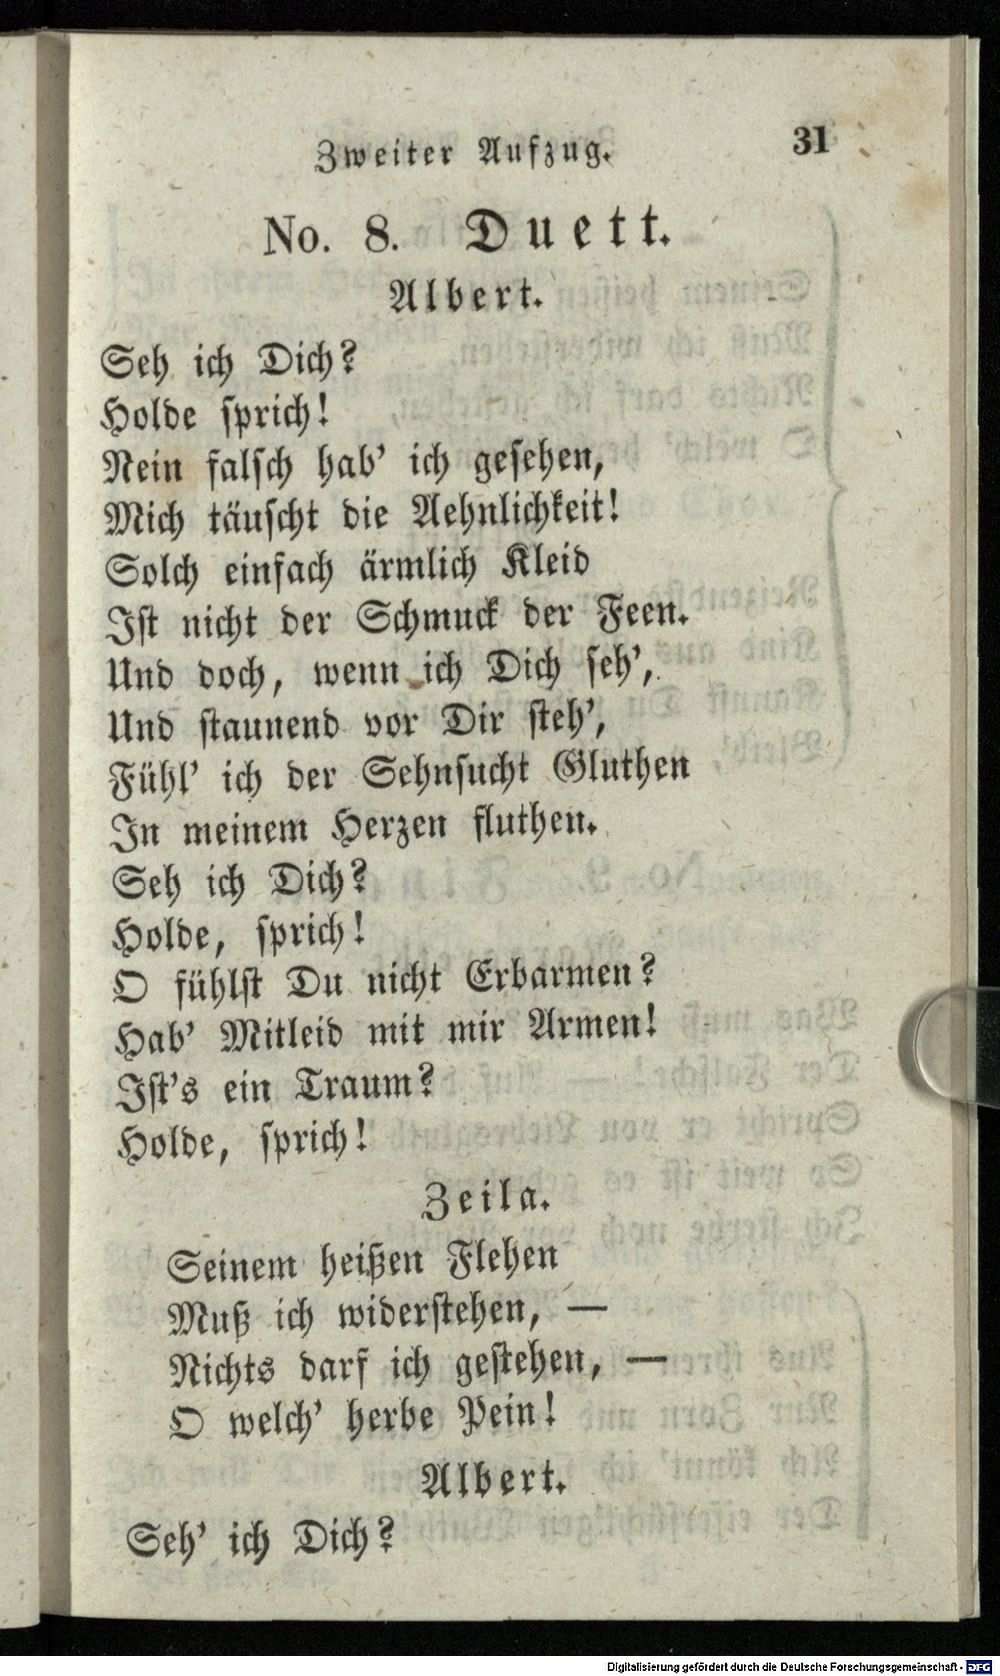 Zweiter Aufzug. 31
No. 8. Duett.
Albert.
Seh ich Dich?
Holde sprich!
Nein falsch hab' ich gesehen,
Mich täuscht die Aehnlichkeit!
Solch einfach ärmlich Kleid
Ist nicht der Schmuck der Feen.
Und doch, wenn ich Dich seh',
Und staunend vor Dir steh',
Fühl' ich der Sehnsucht Gluthen
In meinem Herzen fluthen.
Seh ich Dich?
Holde, sprich!
O fühlst Du nicht Erbarmen?
Hab' Mitleid mit mir Armen!
Ist's ein Traum?
Holde, sprich!
Zeila.
Seinem heißen Flehen
Muß ich widerstehen, —
Nichts darf ich gestehen, —
O welch' herbe Pein!
Albert.
Seh' ich Dich?
Digitalisierung gefördert durch die Deutsche Forschungsgemeinschaft - DFG